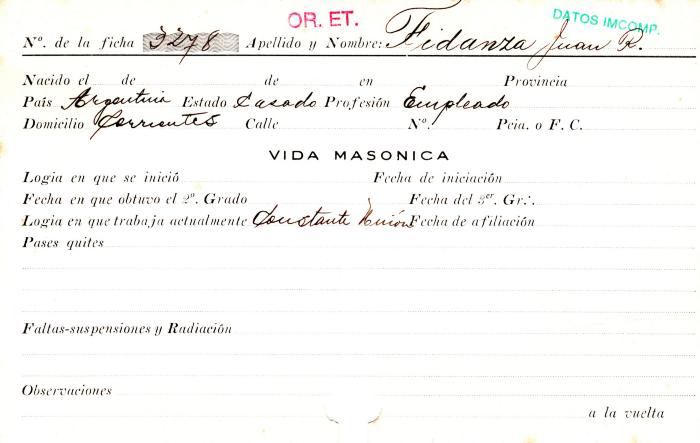 OR. ET.
DATOS IMCOMP.
Nº. de la ficha 3278 Apellido y Nombre: Fidanza Juan R.
Nacido el de de en Provincia
País Argentina Estado Casado Profesión Empleado
Domicilio Corrientes Calle Nº. Pcia. o F. C.
VIDA MASONICA
Logia en que se inició Fecha de iniciación
Fecha en que obtuvo el 2º. Grado Fecha del 3er. Gr∴.
Logia en que trabaja actualmente Constante Unión Fecha de afiliación
Pases quites
Faltas-suspensiones y Radiación
Observaciones
a la vuelta